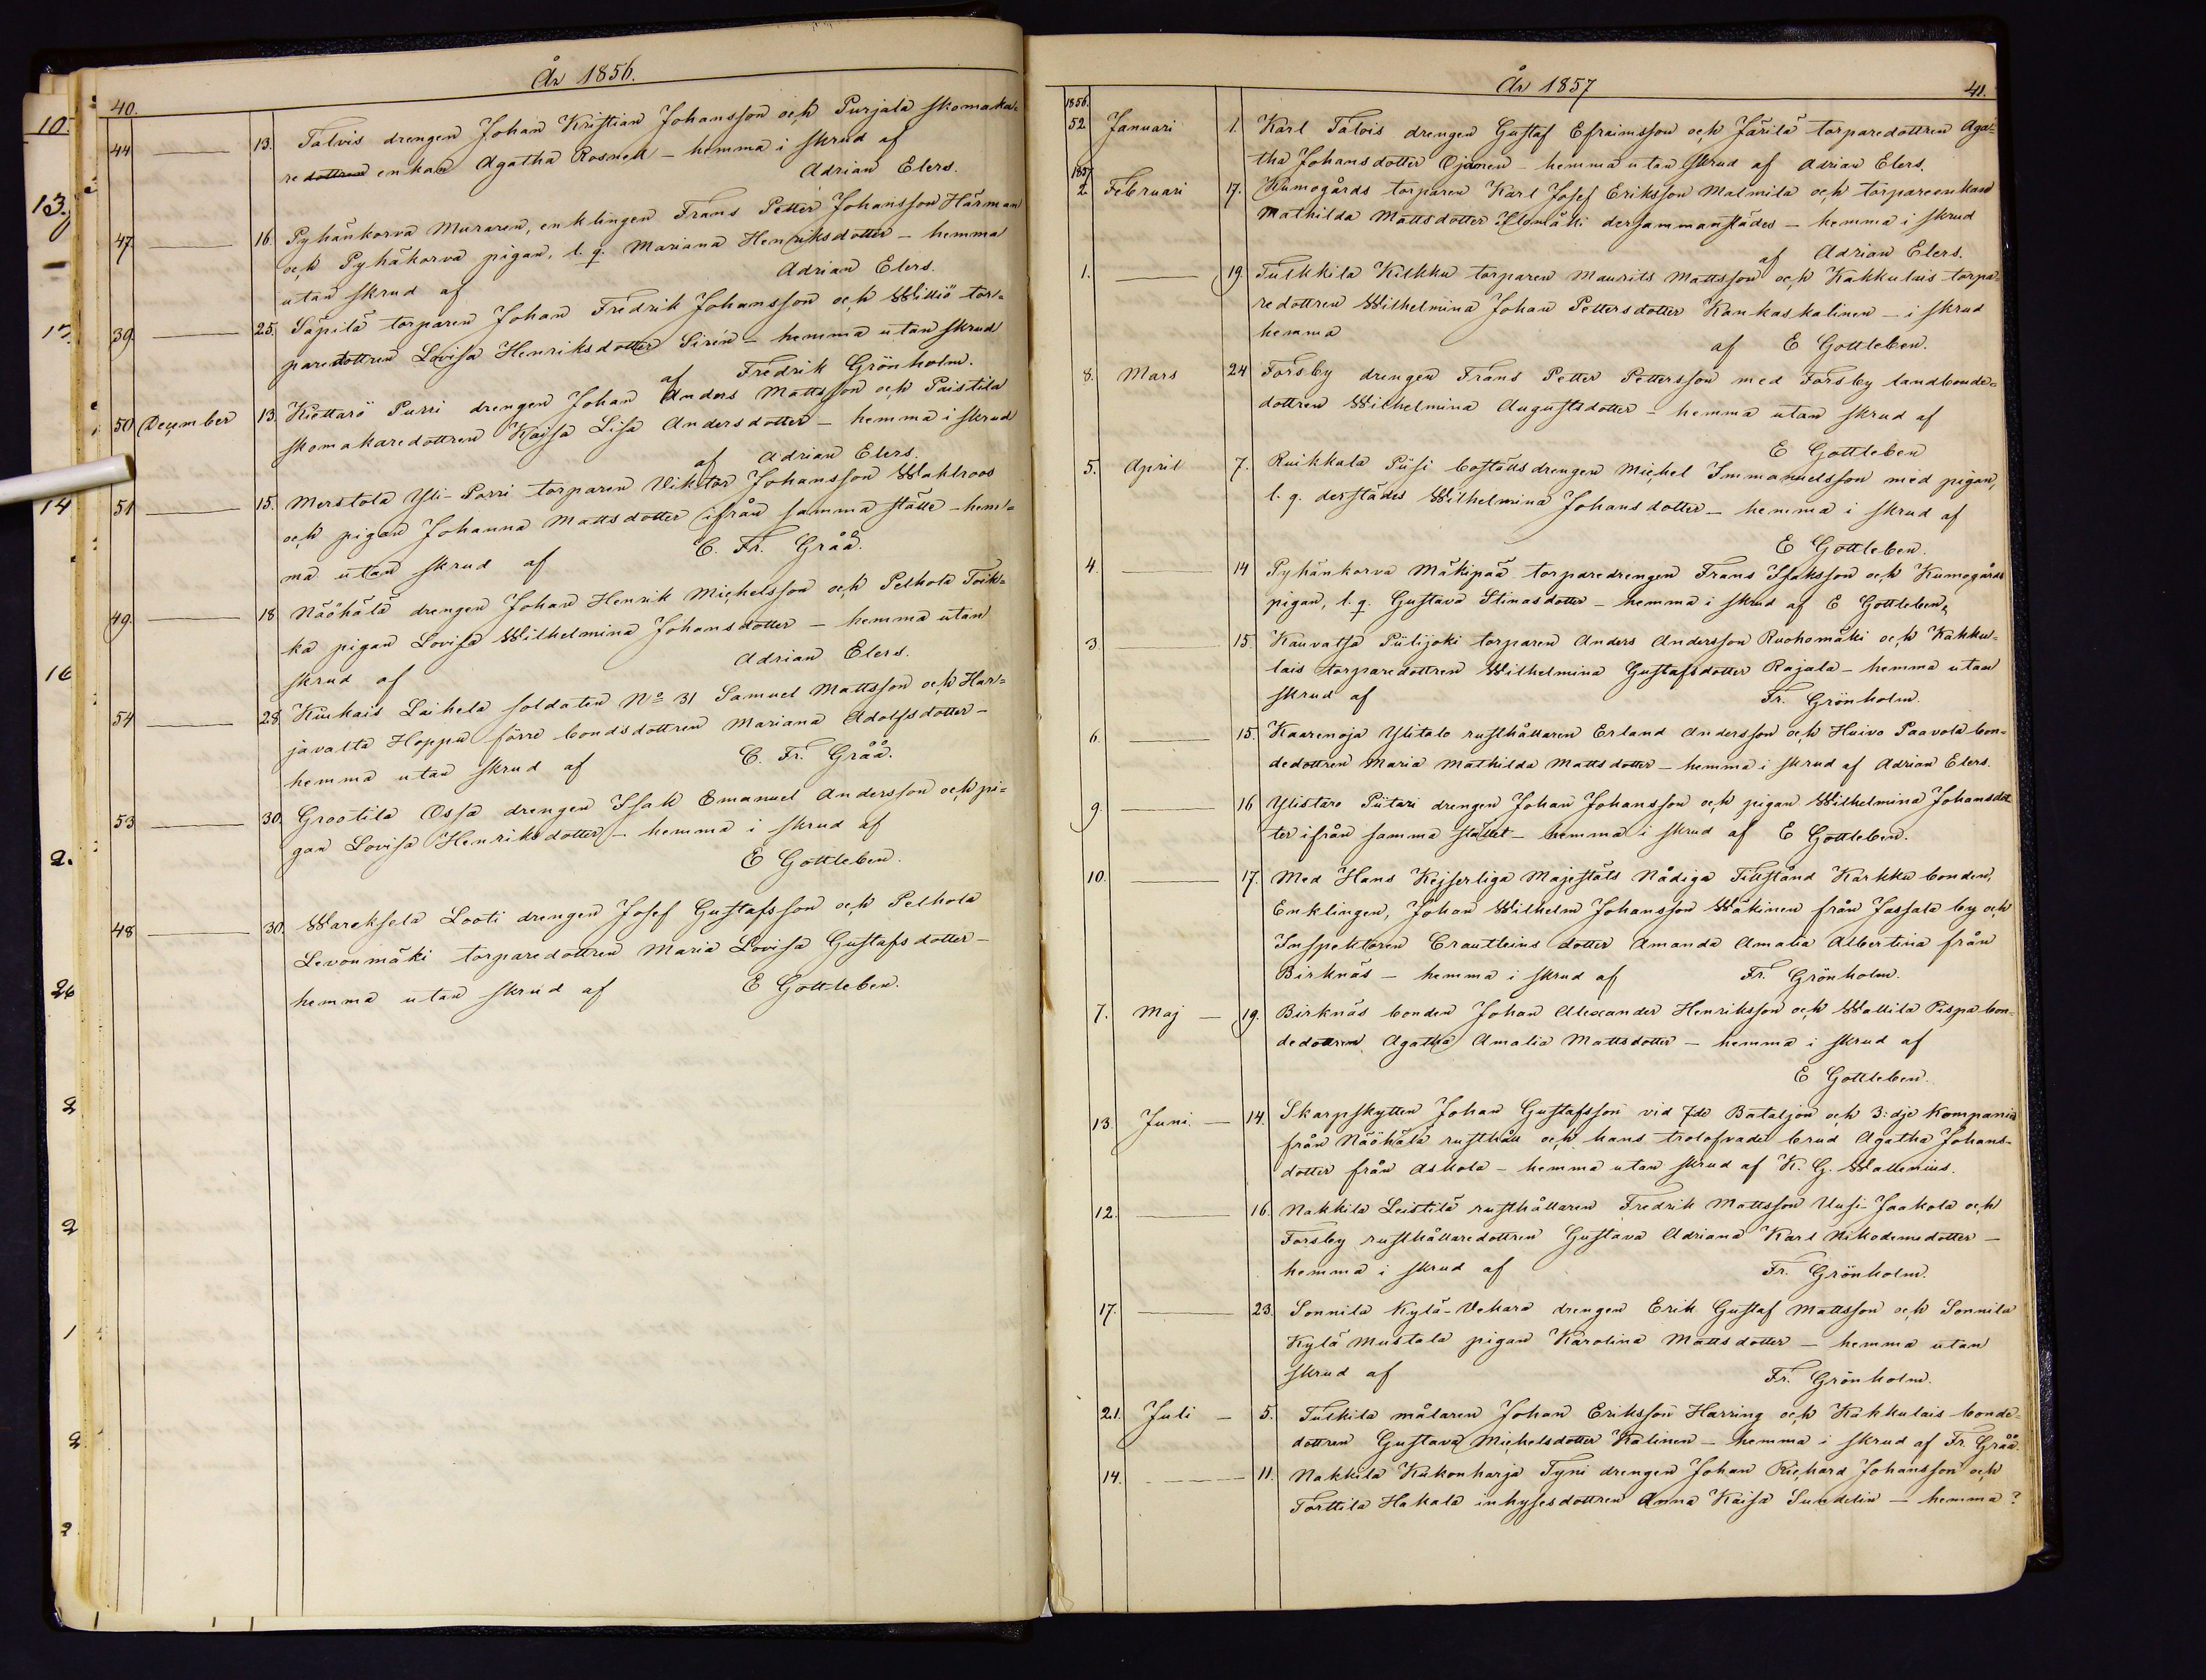 År 1856.
40.
44 — 13. Talvis drengen Johan Kristian Johansson och Purjala skomaka-
re dottren enkan Agatha Rosnell – hemma i skrud af
Adrian Elers.
47. — 16. Pyhänkorva Muraren, enklingen Frans Petter Johansson Härman
och Pyhäkorva pigan, l. q. Mariana Henriksdotter – hemma
utan skrud af Adrian Elers.
39. — 25. Säpilä torparen Johan Fredrik Johansson och Williö tor-
paredottren Lovisa Henriksdotter Sirén – hemma utan skrud
af Fredrik Grönholm.
50 December 13. Kiettarö Purri drengen Johan Anders Mattsson och Paistila
skomakaredottren Kajsa Lisa Andersdotter – hemma i skrud
af Adrian Elers.
51 — 15. Merstola Yli-Porri torparen Viktor Johansson Wahlroos
och pigan Johanna Mattsdotter ifrån samma ställe – hem-
ma utan skrud af C. Fr. Gråå.
49. — 18 Näöhälä drengen Johan Henrik Michelsson och Pelhola Toik-
ka pigan Lovisa Wilhelmina Johansdotter – hemma utan
skrud af Adrian Elers.
54 — 28. Kiukais Laihela soldaten No 31 Samuel Mattsson och Har-
javalta Hoppu förre bondsdottren Mariana Adolfsdotter –
hemma utan skrud af C. Fr. Gråå.
53 — 30. Grootila Ossa drengen Isak Emanuel Andersson och pi-
gan Lovisa Henriksdotter – hemma i skrud af
E Gottleben.
48 — 30. Wareksela Looti drengen Josef Gustafsson och Pelhola
Levonmäki torparedottren Maria Lovisa Gustafsdotter –
hemma utan skrud af E Gottleben.
10.
13.
14
16
2.
26
2
2
1
2
2
År 1857
41.
1856.
52 Januari 1. Karl Talvis drengen Gustaf Efraimsson och Järilä torparedottren Aga-
tha Johansdotter Ojanen – hemma utan skrud af Adrian Elers.
1857
2. Februari 17. Kumogårds torparen Karl Josef Eriksson Malmila och torpareenkan
Mathilda Mattsdotter Ylemäki dersammanstädes – hemma i skrud
af Adrian Elers.
1. — 19. Tulkkila Kilkku torparen Maurits Mattsson och Kakkulais torpa-
redottren Wilhelmina Johan Pettersdotter Kankaskalinen – i skrud
hemma af E Gottleben.
8. Mars 24 Forsby drengen Frans Petter Pettersson med Forsby landbonde-
dottren Wilhelmina Augustsdotter – hemma utan skrud af
E Gottleben
5. April 7. Ruikkala Piisi boställsdrengen Michel Immanuelsson med pigan,
l. q. derstädes Wilhelmina Johansdotter – hemma i skrud af
E Gottleben.
4. — 14 Pyhänkorva Mäkipää torparedrengen Frans Isaksson och Kumogårds
pigan, l. q. Gustava Stinasdotter – hemma i skrud af E Gottleben,
3. — 15. Kauvatsa Piilijoki torparen Anders Andersson Ruohomäki och Kakku-
lais torparedottren Wilhelmina Gustafsdotter Rajala – hemma utan
skrud af Fr. Grönholm.
6. — 15. Kaarenoja Ylitalo rusthållaren Erland Andersson och Huivo Paavola bon-
dedottren Maria Mathilda Mattsdotter – hemma i skrud af Adrian Elers.
9. — 16 Ylistaro Piitari drengen Johan Johansson och pigan Wilhelmina Johansdot
ter ifrån samma stället – hemma i skrud af E Gottleben.
10. — 17. Med Hans Kejserliga Majestäts Nådiga Tillstånd Karkku bonden,
Enklingen, Johan Wilhelm Johansson Wäkinen från Jassala by och
Inspektoren Crautleins dotter Amanda Amalia Albertina från
Birknäs – hemma i skrud af Fr. Grönholm.
7. Maj — 19. Birknäs bonden Johan Alexander Henriksson och Wallila Pispa bon-
dedottren Agatha Amalia Mattsdotter – hemma i skrud af
E Gottleben.
13. Juni. — 14. Skarpskytten Johan Gustafsson vid 7de Bataljon och 3:dje Kompania
från Näöhälä rusthåll och hans trolofvade brud Agatha Johans-
dotter från Askola – hemma utan skrud af K. G. Wallenius.
12. — 16. Nakkila Leistilä rusthållaren Fredrik Mattsson Uusi-Jaakola och
Forsby rusthållaredottren Gustava Adriana Karl Nikodemsdotter –
hemma i skrud af Fr. Grönholm.
17. — 23. Sonnila Kylä-Vekara drengen Erik Gustaf Mattsson och Sonnila
Kylä Mustala pigan Karolina Mattsdotter – hemma utan
skrud af Fr. Grönholm.
21. Juli — 5. Tulkila målaren Johan Eriksson Harring och Kakkulais bonde-
dottren Gustava Michelsdotter Kalinen – hemma i skrud af Fr. Gråå.
14. — 11. Nakkila Kukonharja Tyni drengen Johan Richard Johansson och
Torttila Hakala inhysesdottren Anna Kaisa Sundelin – hemma?